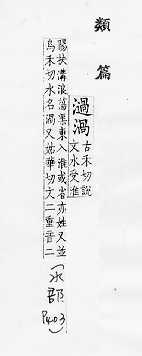 類篇
濄渦
古禾切說
文水受淮
陽扶溝浪蕩渠東入淮或省亦姓又並
烏禾切水名濄又姑華切文二重音二
(水部
P403)